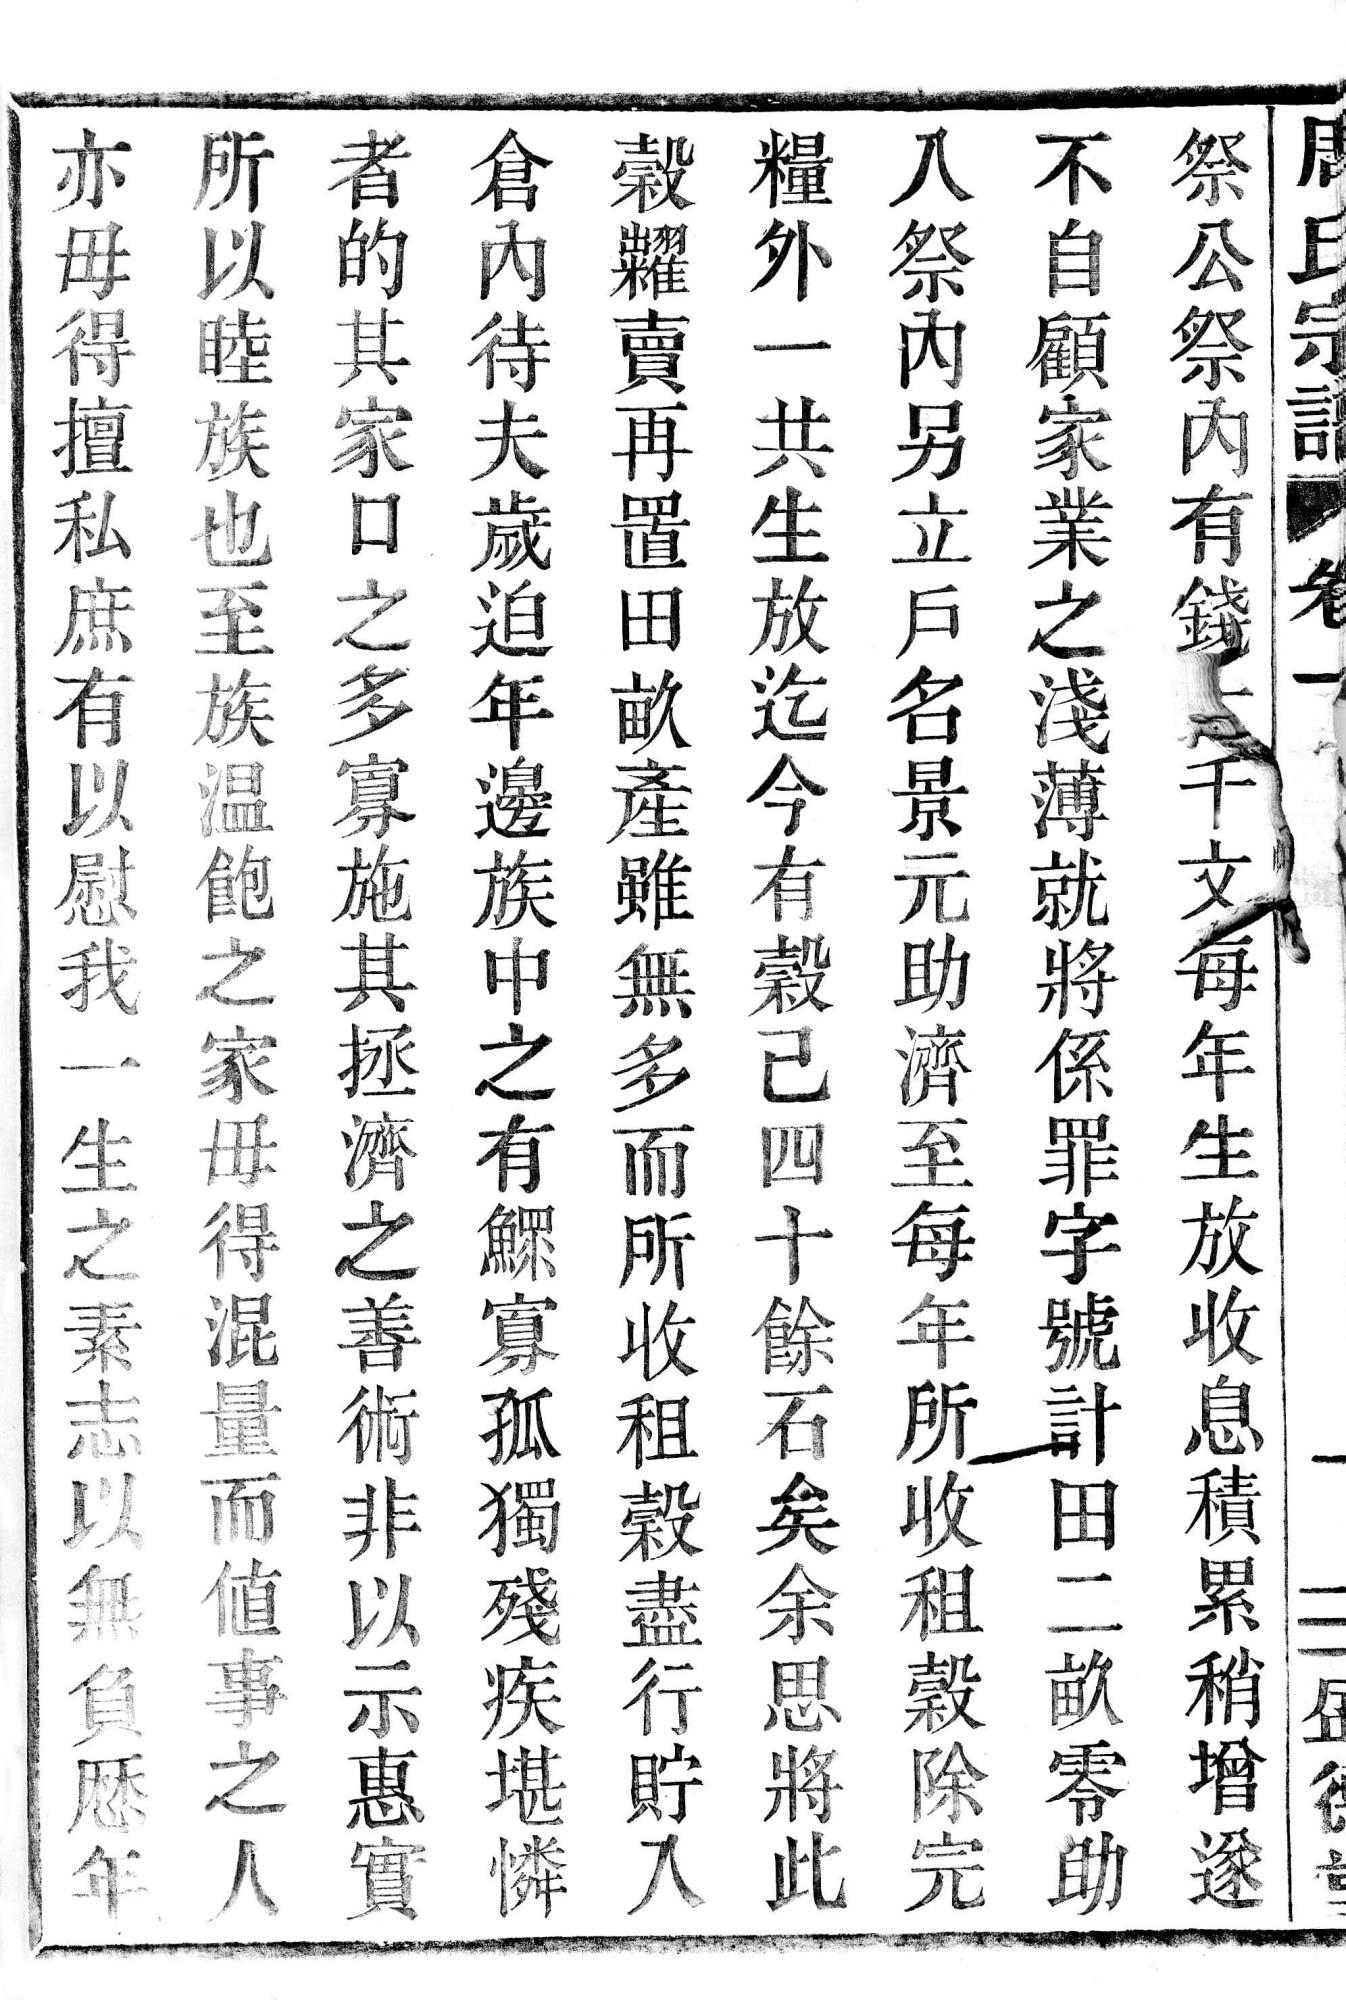 周氏宗譜 卷一
祭公祭内有錢千文每年生放收息積累稍增遂
不自顧家業之淺薄就將係罪字號計田二畝零助
入祭内另立戶名景元助濟至每年所收租穀除完
糧外一共生放迄今有穀已四十餘石矣余思將此
穀糶賣再置田畝產雖無多而所收租穀盡行貯入
倉內待夫歲迫年邊族中之有鰥寡孤獨殘疾堪憐
者的其家口之多寡施其拯濟之善術非以示惠實
所以睦族也至族温飽之家毋得混量而值事之人
亦毋得擅私庶有以慰我一生之素志以無負歷年